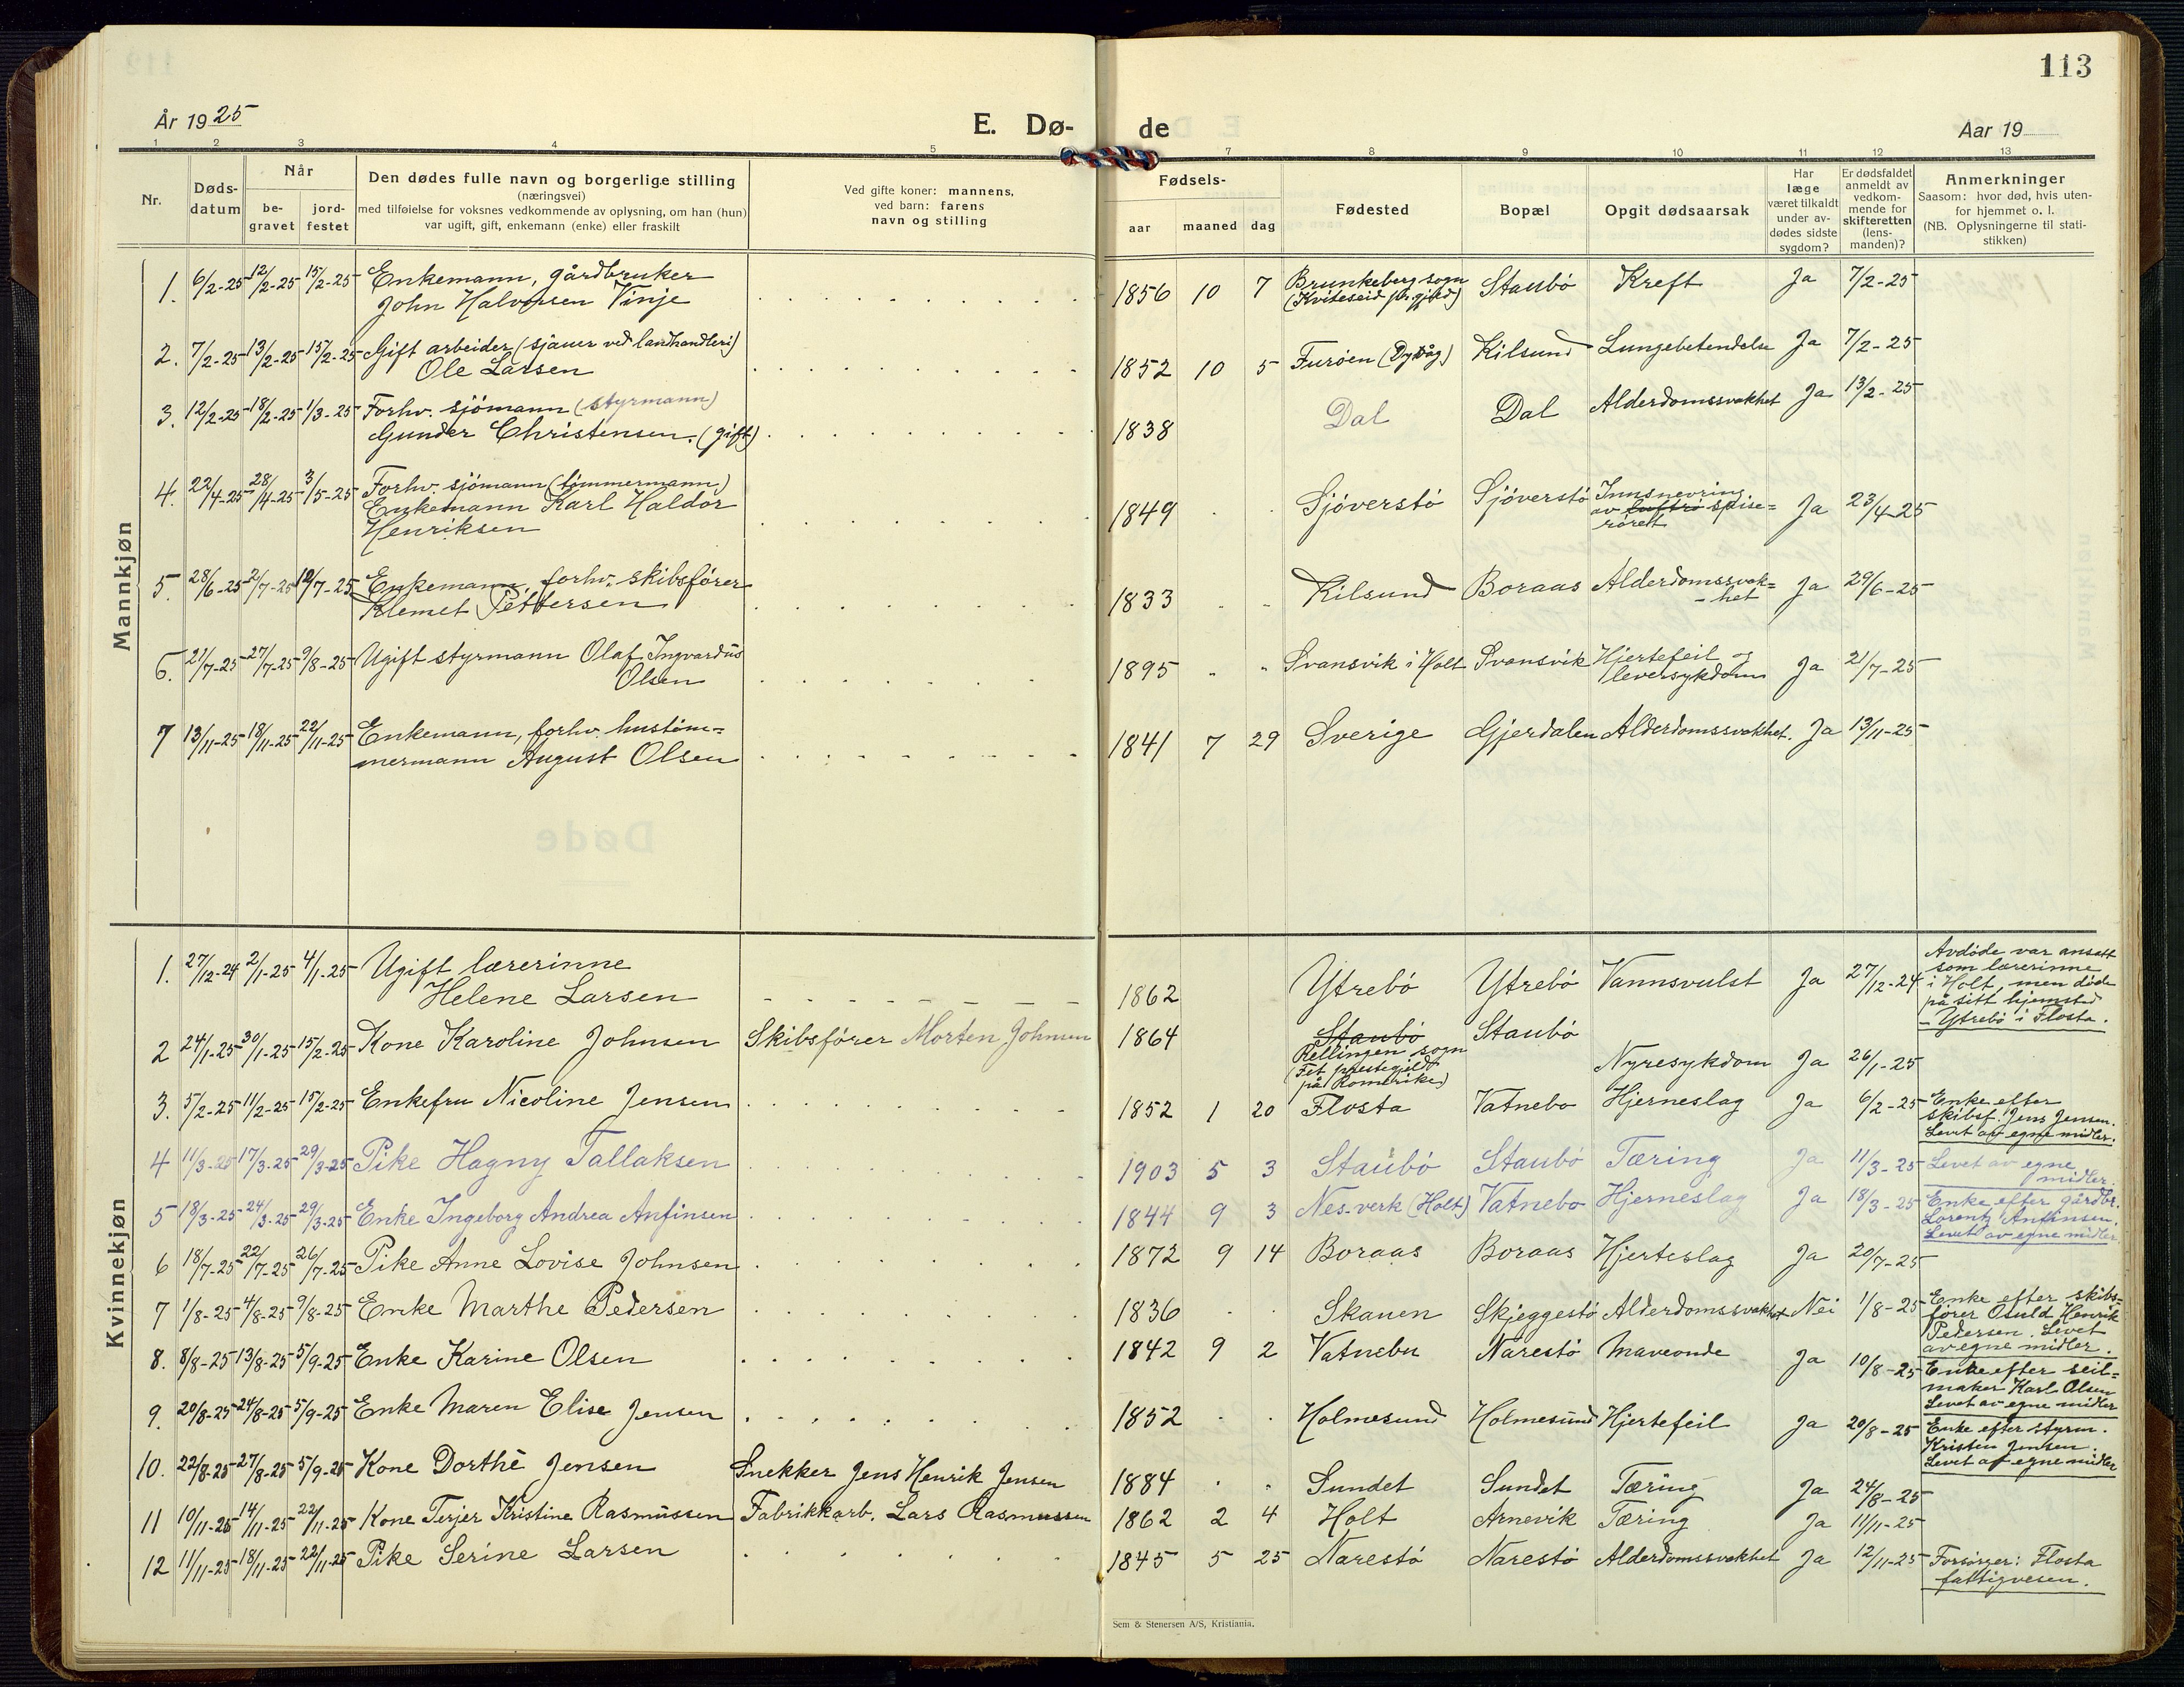 113
År 1925
E. Dø-
de
Aar 19
1 2 3 4 5 7 8 9 10 11 12 13
Nr.
Døds-
datum
Når
be-
gravet
jord-
festet
Den dødes fulle navn og borgerlige stilling
(næringsvei)
med tilføielse for voksnes vedkommende av oplysning, om han (hun)
var ugift, gift, enkemann (enke) eller fraskilt
Ved gifte koner: mannens,
ved barn: farens
navn og stilling
Fødsels-
aar maaned dag
Fødested
Bopæl
Opgit dødsaarsak
Har
læge
været tilkaldt
under av-
dødes sidste
sygdom?
Er dødsfaldet
anmeldt av
vedkom-
mende for
skifteretten
(lens-
manden)?
Anmerkninger
Saasom: hvor død, hvis uten-
for hjemmet o. l.
(NB. Oplysningerne til stati-
stikken)
Mannkjøn
1. 6/2-25 12/2-25 15/2-25 Enkemann, gårdbruker
John Halvorsen Vinje
1856 10 7 Brunkeberg sogn
(Kviteseid pr.gjeld) Staubö Kreft Ja 7/2-25
2. 7/2-25 13/2-25 15/2-25 Gift arbeider (sjauer ved landhandleri)
Ole Larsen
1852 10 5 Furöen (Dybvåg) Kilsund Lungebetendelse Ja 7/2-25
3. 12/2-25 18/2-25 1/3-25 Forhv. sjömann (styrmann)
Gunder Christensen. (gift)
1838 Dal Dal Alderdomssvakhet Ja 13/2-25
4. 22/4-25 28/4-25 3/5-25 Forhv. sjömann (tömmermann)
Enkemann Karl Haldor
Henriksen
1849 Sjöverstö Sjöverstö Innsnevring
av luftrö spise=
röret Ja 23/4-25
5. 28/6-25 2/7-25 12/7-25 Enkemann, forhv. skibsfører
Klemet Pettersen
1833 Kilsund Boraas Alderdomssvak=
-het Ja 29/6-25
6. 21/7-25 27/7-25 9/8-25 Ugift styrmann Olaf Ingvardus
Olsen
1895 Svansvik i Holt Svansvik Hjertefeil og
leversykdom Ja 21/7-25
7 13/11-25 18/11-25 22/11-25 Enkemann, forhv. hustöm=
mermann August Olsen
1841 7 29 Sverige Gjerdalen Alderdomssvakhet. Ja 13/11-25
Kvinnekjøn
1. 27/12-24 2/1-25 4/1-25 Ugift lærerinne
Helene Larsen
1862 Ytrebö Ytrebö Vannsvulst Ja 27/12-24
Avdöde var ansatt
som lærerinne
i Holt, men döde
på sitt hjemsted
- Ytrebö i Flosta.
2 24/1-25 30/1-25 15/2-25 Kone Karoline Johnsen Skibsförer Morten Johnsen
1864 Staubö
Rellingen sogn
(Fet prestegjeld
på Romerike) Staubö Nyresykdom Ja 26/1-25
3. 5/2-25 11/2-25 15/2-25 Enkefru Nicoline Jensen
1852 1 20 Flosta Vatnebo Hjerneslag Ja 6/2-25
Enke efter
skibsf. Jens Jensen.
Levet av egne midler.
4 11/3-25 17/3-25 29/3-25 Pike Hagny Tallaksen
1903 5 3 Staubö Staubö Tæring Ja 11/3-25
Levet av egne
midler.
5 18/3-25 24/3-25 29/3-25 Enke Ingeborg Andrea Anfinsen
1844 9 3 Nes-verk (Holt) Vatnebo Hjerneslag Ja 18/3-25
Enke efter gårdbr.
Lorentz Anfinsen.
Levet av egne midler
6 18/7-25 22/7-25 26/7-25 Pike Anne Lovise Johnsen
1872 9 14 Boraas Boraas Hjerteslag Ja 20/7-25
7 1/8-25 4/8-25 9/8-25 Enke Marthe Pedersen
1836 Skauen Skjeggestö Alderdomssvakhet Nei 1/8-25
Enke efter skibs-
fører Osuld Henrik
Pedersen. Levet
av egne midler.
8. 8/8-25 13/8-25 5/9-25 Enke Karine Olsen
1842 9 2 Vatnebu Narestö Maveonde Ja 10/8-25
Enke efter seil=
maker Karl Olsen
Levet av egne midler
9. 20/8-25 24/8-25 5/9-25 Enke Maren Elise Jensen
1852 Holmesund Holmesund Hjertefeil Ja 20/8-25
Enke efter styrm.
Kristen Jensen.
Levet af egne midler
10. 22/8-25 27/8-25 5/9-25 Kone Dorthe Jensen Snekker Jens Henrik Jensen
1884 Sundet Sundet Tæring Ja 24/8-25
11 10/11-25 14/11-25 22/11-25 Kone Terjer Kristine Rasmussen Fabrikkarb. Lars Rasmussen
1862 2 4 Holt Arnevik Tæring Ja 11/11-25
12 11/11-25 18/11-25 22/11-25 Pike Serine Larsen
1845 5 25 Narestö Narestö Alderdomssvakhet Ja 12/11-25
Forsörger: Flosta
fattigvesen.
Sem & Stenersen A/S, Kristiania.